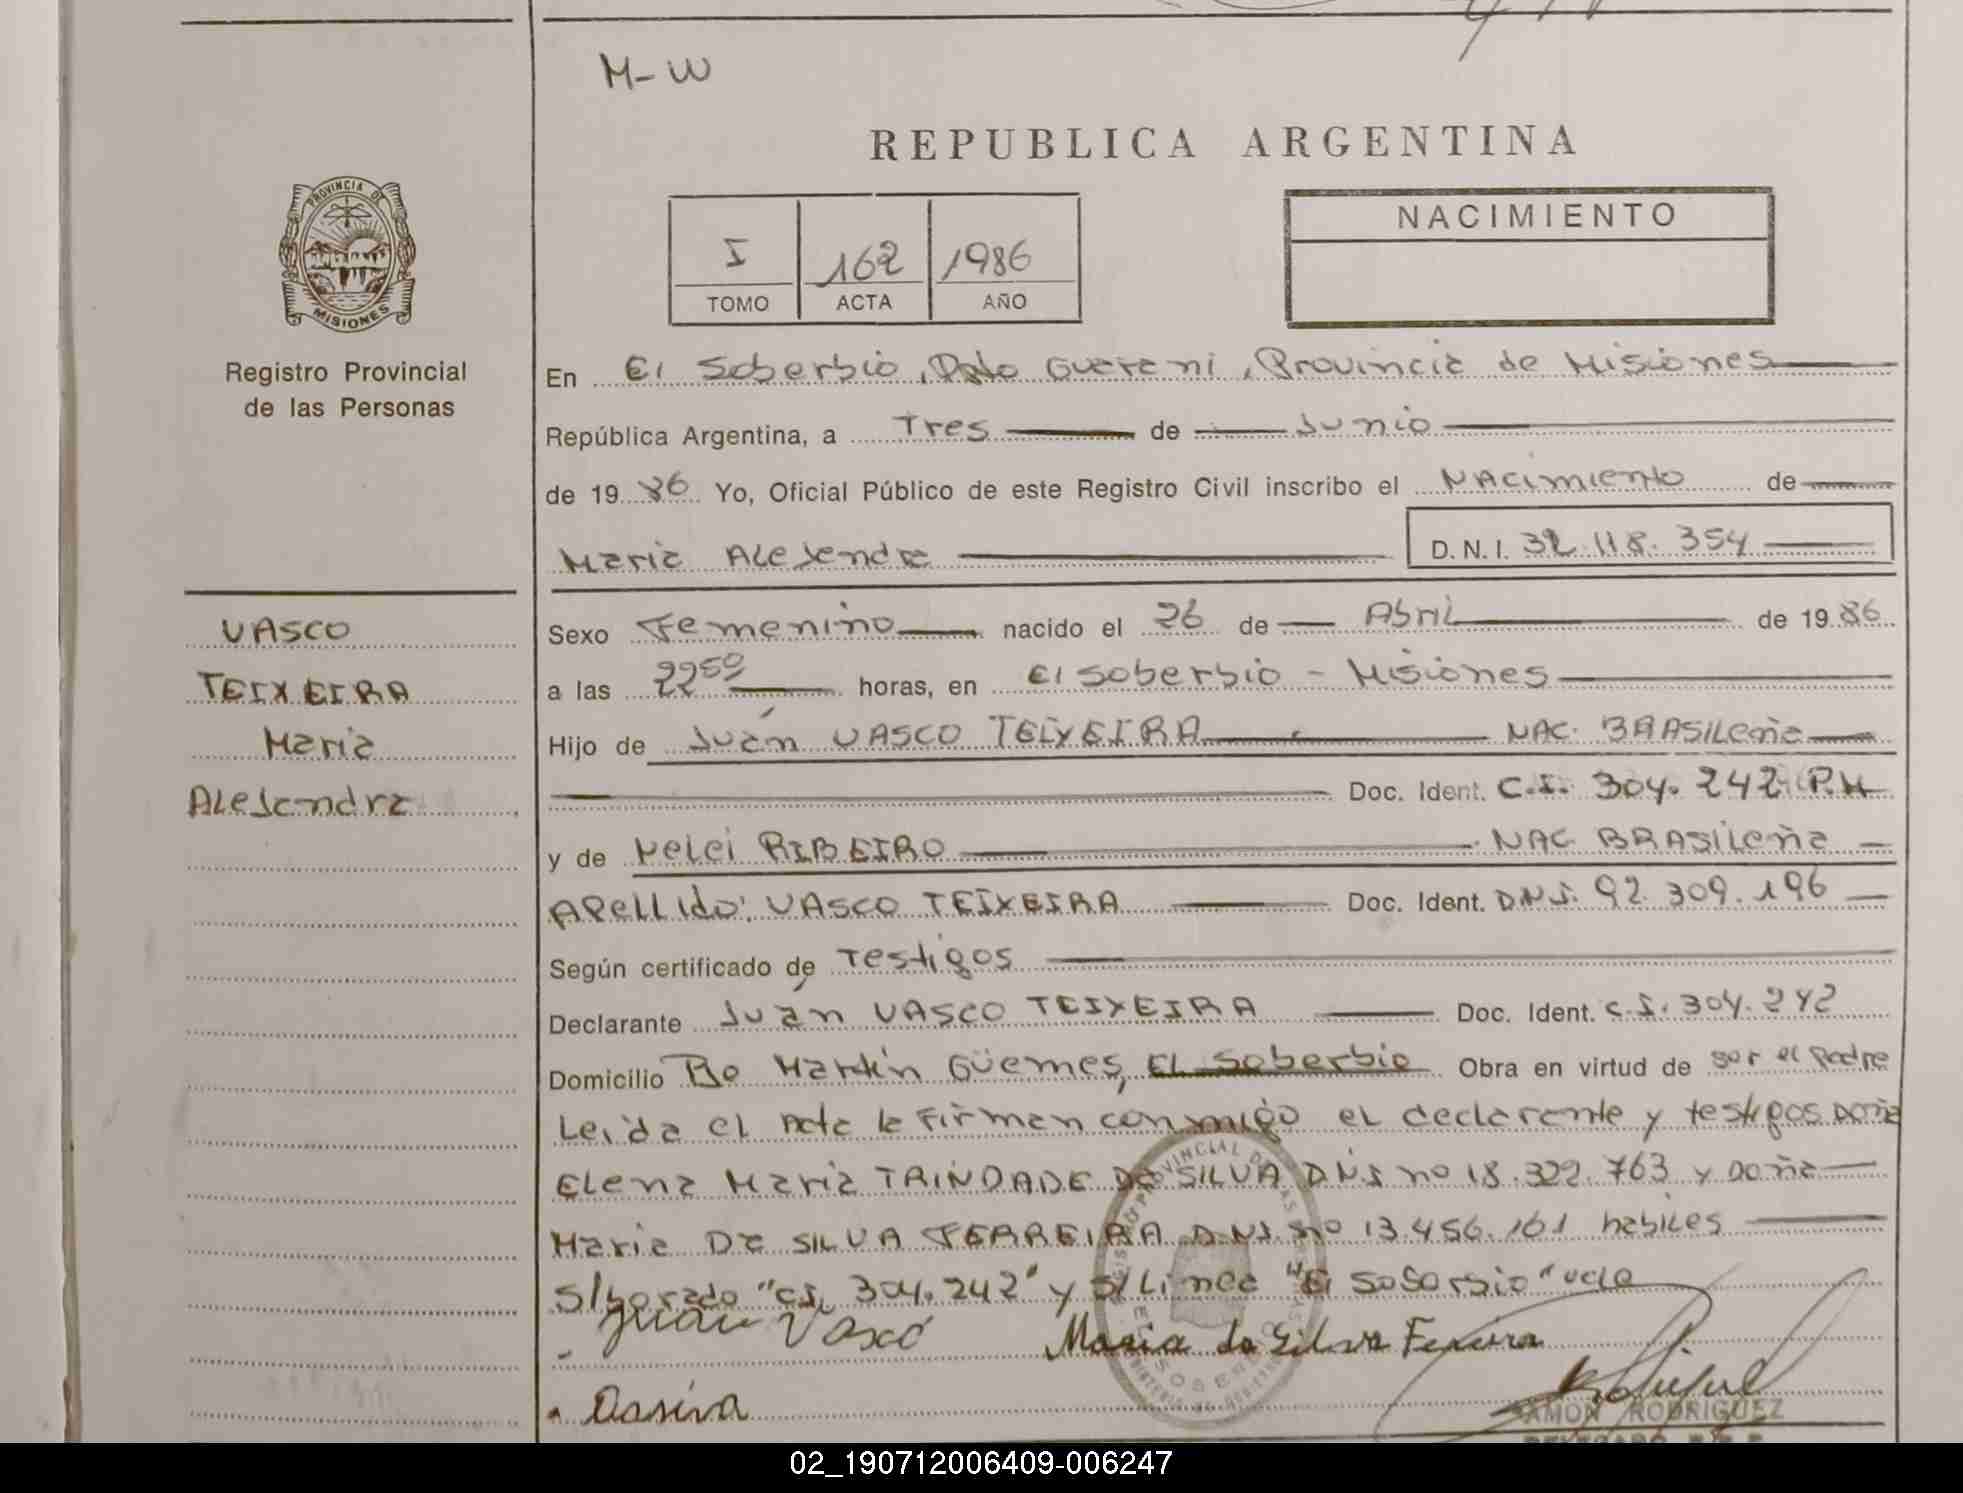 M-W
REPUBLICA ARGENTINA
I 162 1986
TOMO ACTA AÑO
NACIMIENTO
PROVINCIA DE
MISIONES
Registro Provincial
de las Personas
En El Soberbio, Dpto Guarani, Provincia de Misiones
República Argentina, a Tres de Junio
de 19 86 Yo, Oficial Público de este Registro Civil inscribo el NAcimiento de
Maria Alejandra D.N.I. 32.118.354
VASCO
TEIXEIRA
Maria
Alejandra
Sexo Femenino nacido el 26 de Abril de 19 86
a las 22 50 horas, en El Soberbio - Misiones
Hijo de Juán VASCO TEIXEIRA NAC. BRASILeña
Doc. Ident. C.I. 304.242 P.M
y de Nelci RIBEIRO NAC BRASILeña
APellido: VASCO TEIXEIRA Doc. Ident. D.N.I. 92.309.196
Según certificado de Testigos
Declarante Juán VASCO TEIXEIRA Doc. Ident. C.I. 304.242
Domicilio Bo Martín Güemes, EL Soberbio Obra en virtud de ser el padre
Leida el Acta la Firman conmigo el declarante y testigos Doña
Elena Maria TRINDADE Da SILVA D.N.I no 18.322.763 y Doña
Maria Da SILVA FERREIRA D.N.I. no 13.456.161 habiles
S/borado "C.I. 304.242" y S/Linea "El Soberbio" vale
Juan Vasco Maria da Silva Ferreira
RAMON RODRIGUEZ
02_190712006409-006247